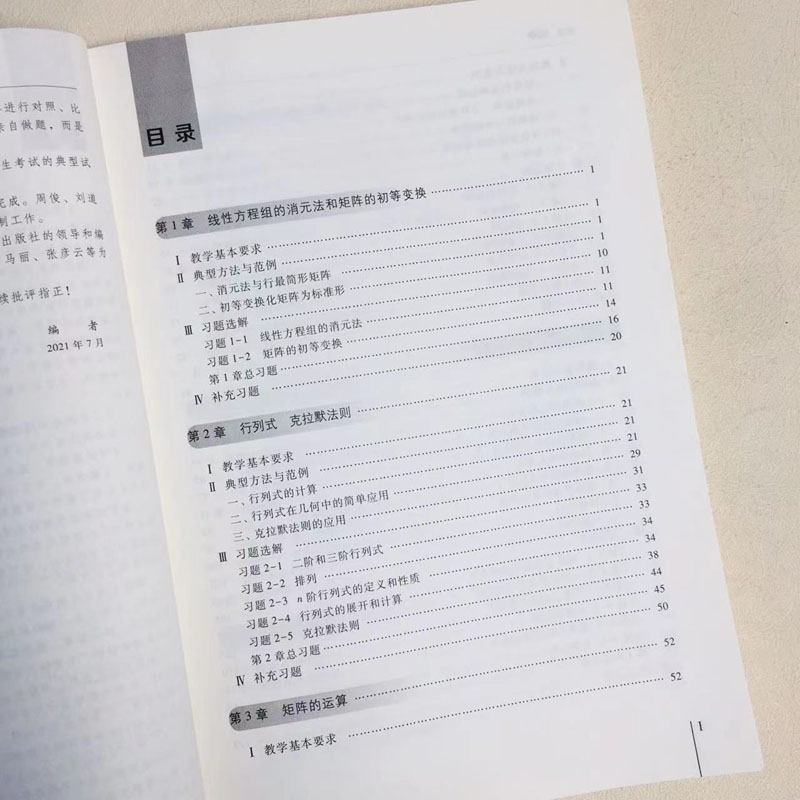 进行对照、比
亲自做题，而是
生考试的典型试
完成。周俊、刘道
制工作。
出版社的领导和编
马丽、张彦云等为
续批评指正！
编 者
2021年7月
目录
第1章 线性方程组的消元法和矩阵的初等变换 1
Ⅰ 教学基本要求 1
Ⅱ 典型方法与范例 1
一、消元法与行最简形矩阵 1
二、初等变换化矩阵为标准形 10
Ⅲ 习题选解 11
习题1-1 线性方程组的消元法 11
习题1-2 矩阵的初等变换 14
第1章总习题 16
Ⅳ 补充习题 20
第2章 行列式 克拉默法则 21
Ⅰ 教学基本要求 21
Ⅱ 典型方法与范例 21
一、行列式的计算 21
二、行列式在几何中的简单应用 29
三、克拉默法则的应用 31
Ⅲ 习题选解 33
习题2-1 二阶和三阶行列式 33
习题2-2 排列 34
习题2-3 n阶行列式的定义和性质 34
习题2-4 行列式的展开和计算 38
习题2-5 克拉默法则 44
第2章总习题 45
Ⅳ 补充习题 50
第3章 矩阵的运算 52
Ⅰ 教学基本要求 52
Ⅰ